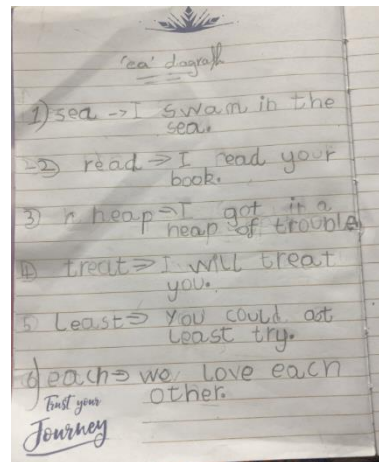 'ea' dagraph
1) sea -> I swam in the
sea.
2) read => I read your
book.
3) heap => I got in a
heap of trouble
4) treat => I will treat
you.
5 Least => you could at
Least try.
6) each => we love each
other.
Trust your
Journey